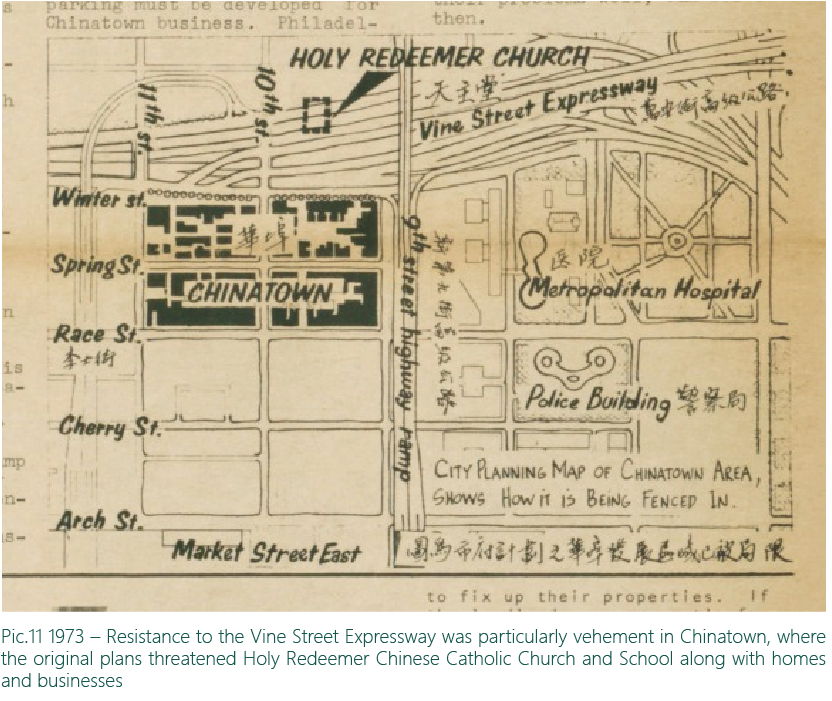 parking must be developed for
Chinatown business. Philadel-
then.
HOLY REDEEMER CHURCH
天主堂
Vine Street Expressway
街高級公路
11th st.
10th st.
Winter st.
華埠
Spring St.
CHINATOWN
9th street highway ramp
新第九街高級公路
医院
Metropolitan Hospital
Race St.
Police Building 警察局
Cherry St.
CITY PLANNING MAP OF CHINATOWN AREA,
SHOWS HOW IT IS BEING FENCED IN.
Arch St.
Market Street East
圖為市府計劃之華埠發展區域已被局限
to fix up their properties. If
Pic.11 1973 – Resistance to the Vine Street Expressway was particularly vehement in Chinatown, where
the original plans threatened Holy Redeemer Chinese Catholic Church and School along with homes
and businesses